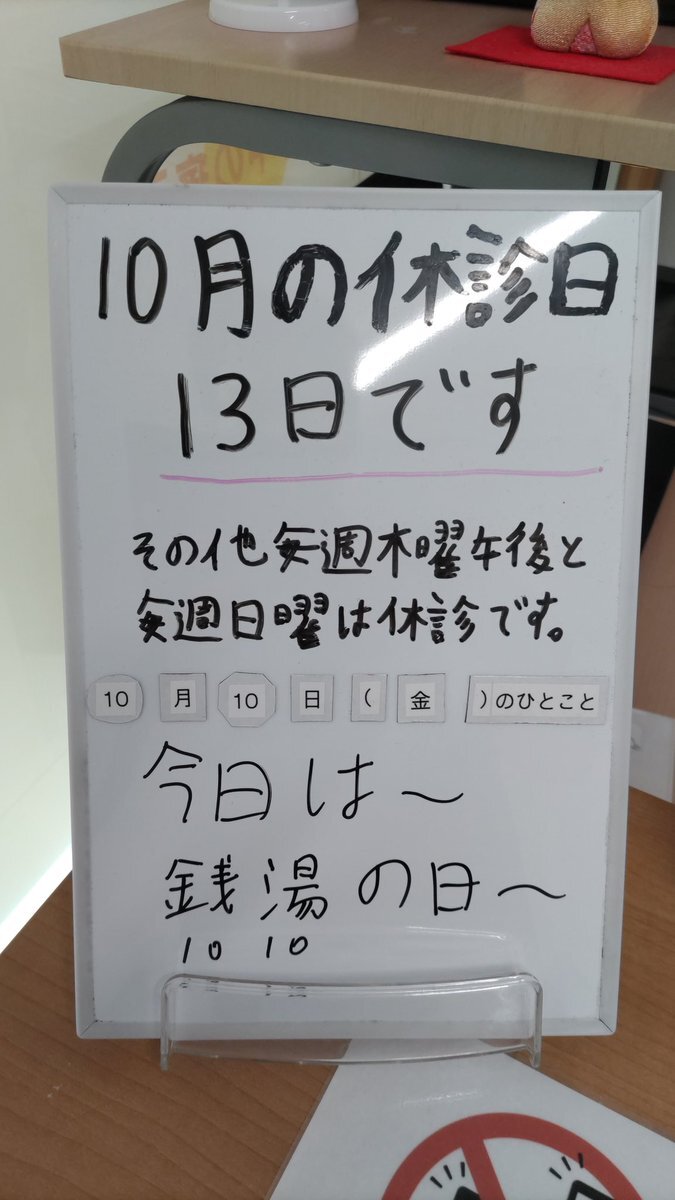 10月の休診日
13日です
その他毎週木曜午後と
毎週日曜は休診です。
10月10日(金)のひとこと
今日は〜
銭湯の日〜
10 10